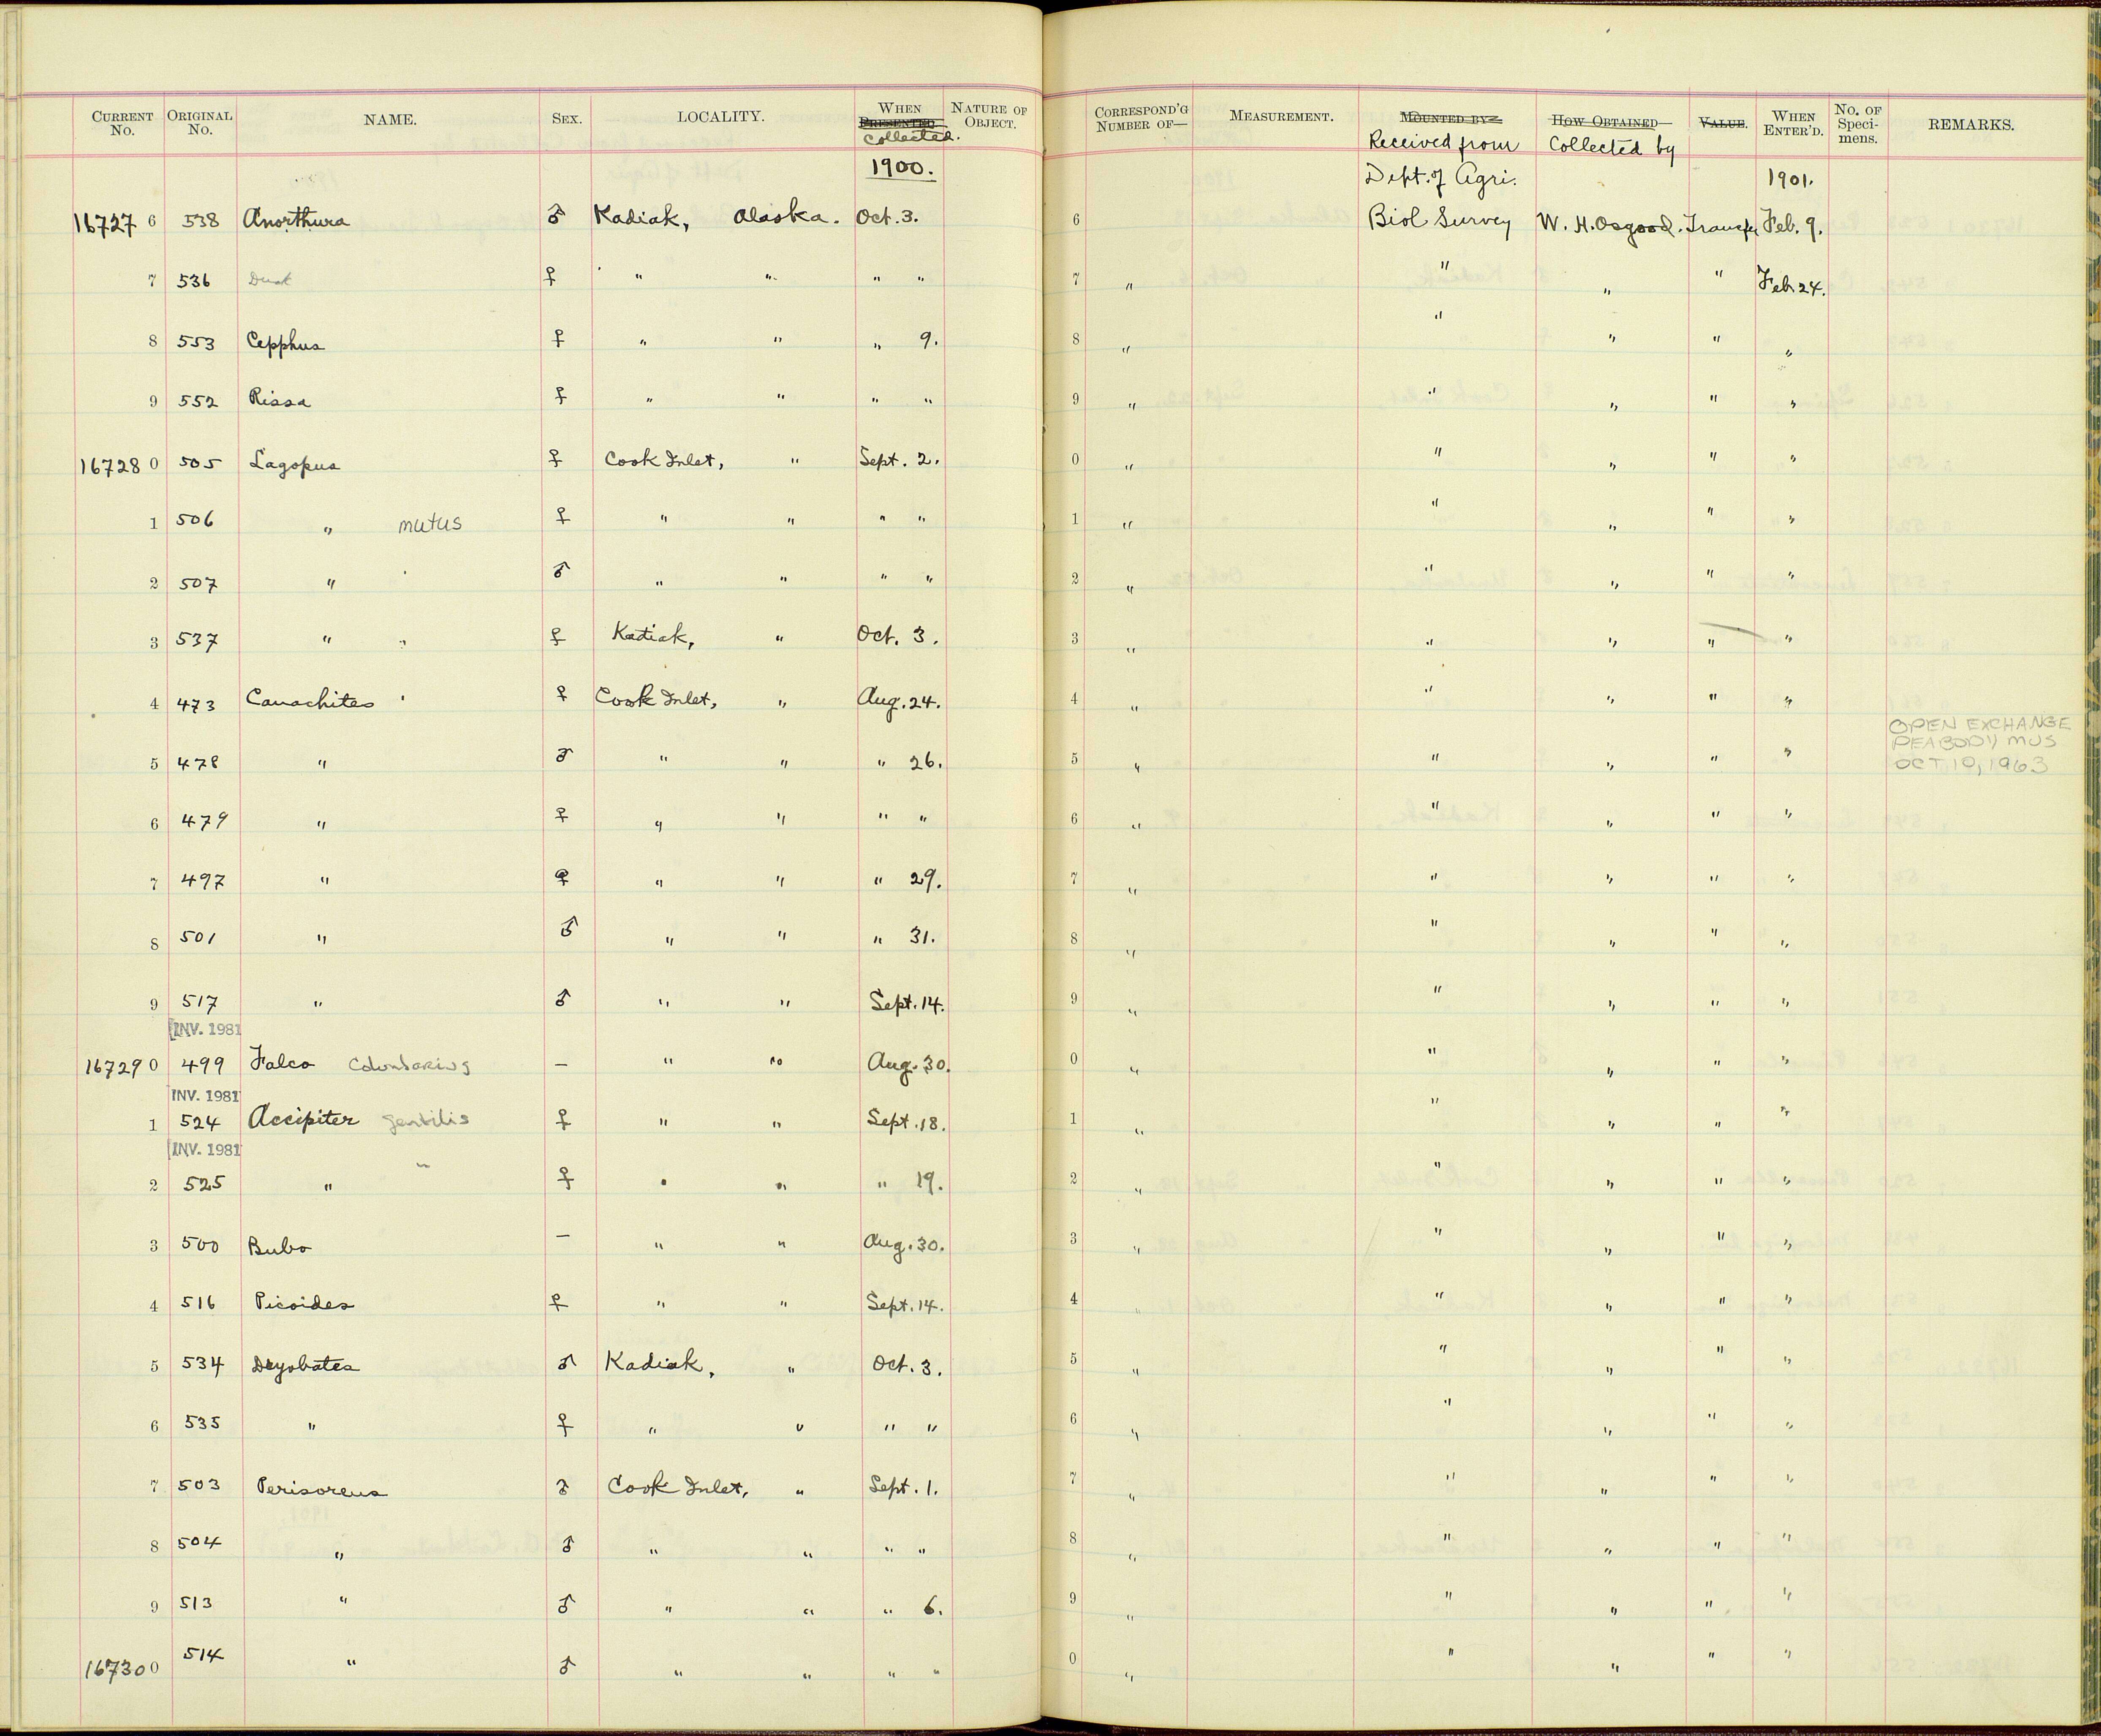 CURRENT No. ORIGINAL No. NAME. SEX. LOCALITY. WHEN PRESENTED collected. NATURE OF OBJECT. CORRESPOND'G NUMBER OF— MEASUREMENT. MOUNTED BY— Received from HOW OBTAINED— Collected by VALUE. WHEN ENTER'D. No. OF Specimens. REMARKS.
1900. Dept. of Agri. 1901.
167276 538 Anorthura ♂ Kadiak, Alaska. Oct. 3. 6 Biol Survey W. H. Osgood. Transfer Feb. 9.
7 536 ♀ " " " " 7 " " " " Feb. 24.
8 553 Cepphus ♀ " " " 9. 8 " " " " "
9 552 Rissa ♀ " " " " 9 " " " " "
167280 505 Lagopus ♀ Cook Inlet, " Sept. 2. 0 " " " " "
1 506 " mutus ♀ " " " " 1 " " " " "
2 507 " ' ♂ " " " " 2 " " " " "
3 537 " " ♀ Kadiak, " Oct. 3. 3 " " " " "
4 473 Canachites ' ♀ Cook Inlet, " Aug. 24. 4 " " " " "
5 478 " ♂ " " " 26. 5 " " " " " OPEN EXCHANGE
PEABODY MUS
OCT 10, 1963
6 479 " ♀ " " " " 6 " " " " "
7 497 " ♀ " " " 29. 7 " " " " "
8 501 " ♂ " " " 31. 8 " " " " "
9 517 " ♂ " " Sept. 14. 9 " " " " "
INV. 1981
167290 499 Falco columbarius — " " Aug. 30. 0 " " " " "
INV. 1981
1 524 Accipiter gentilis ♀ " " Sept. 18. 1 " " " " "
INV. 1981
2 525 " " ♀ " " " 19. 2 " " " " "
3 500 Bubo — " " Aug. 30. 3 " " " " "
4 516 Picoides ♀ " " Sept. 14. 4 " " " " "
5 534 Dryobates ♂ Kadiak, " Oct. 3. 5 " " " " "
6 535 " ♀ " " " " 6 " " " " "
7 503 Perisoreus ♂ Cook Inlet, " Sept. 1. 7 " " " " "
8 504 " ♂ " " " " 8 " " " " "
9 513 " ♂ " " " 6. 9 " " " " "
167300 514 " ♂ " " " " 0 " " " " "